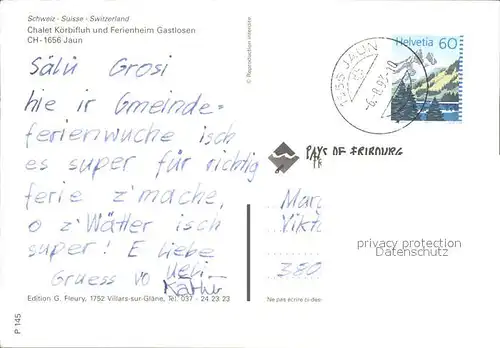 Schweiz · Suisse · Switzerland
Chalet Körbifluh und Ferienheim Gastlosen
CH-1656 Jaun
Sälü Grosi
hie ir Gmeinde=
ferienwuche isch
es super für richtig
ferie z'mache,
o z'Wätter isch
super! E liebe
Gruess vo Ueli
Edition G. Fleury, 1752 Villars-sur-Glâne, Tel. 037 - 24 23 23
P 145
© Reproduction interdite
1656 JAUN
Helvetia 60
PAYS DE FRIBOURG
Mar
Vikt
380
privacy protection
Datenschutz
Ne pas écrire ci-des